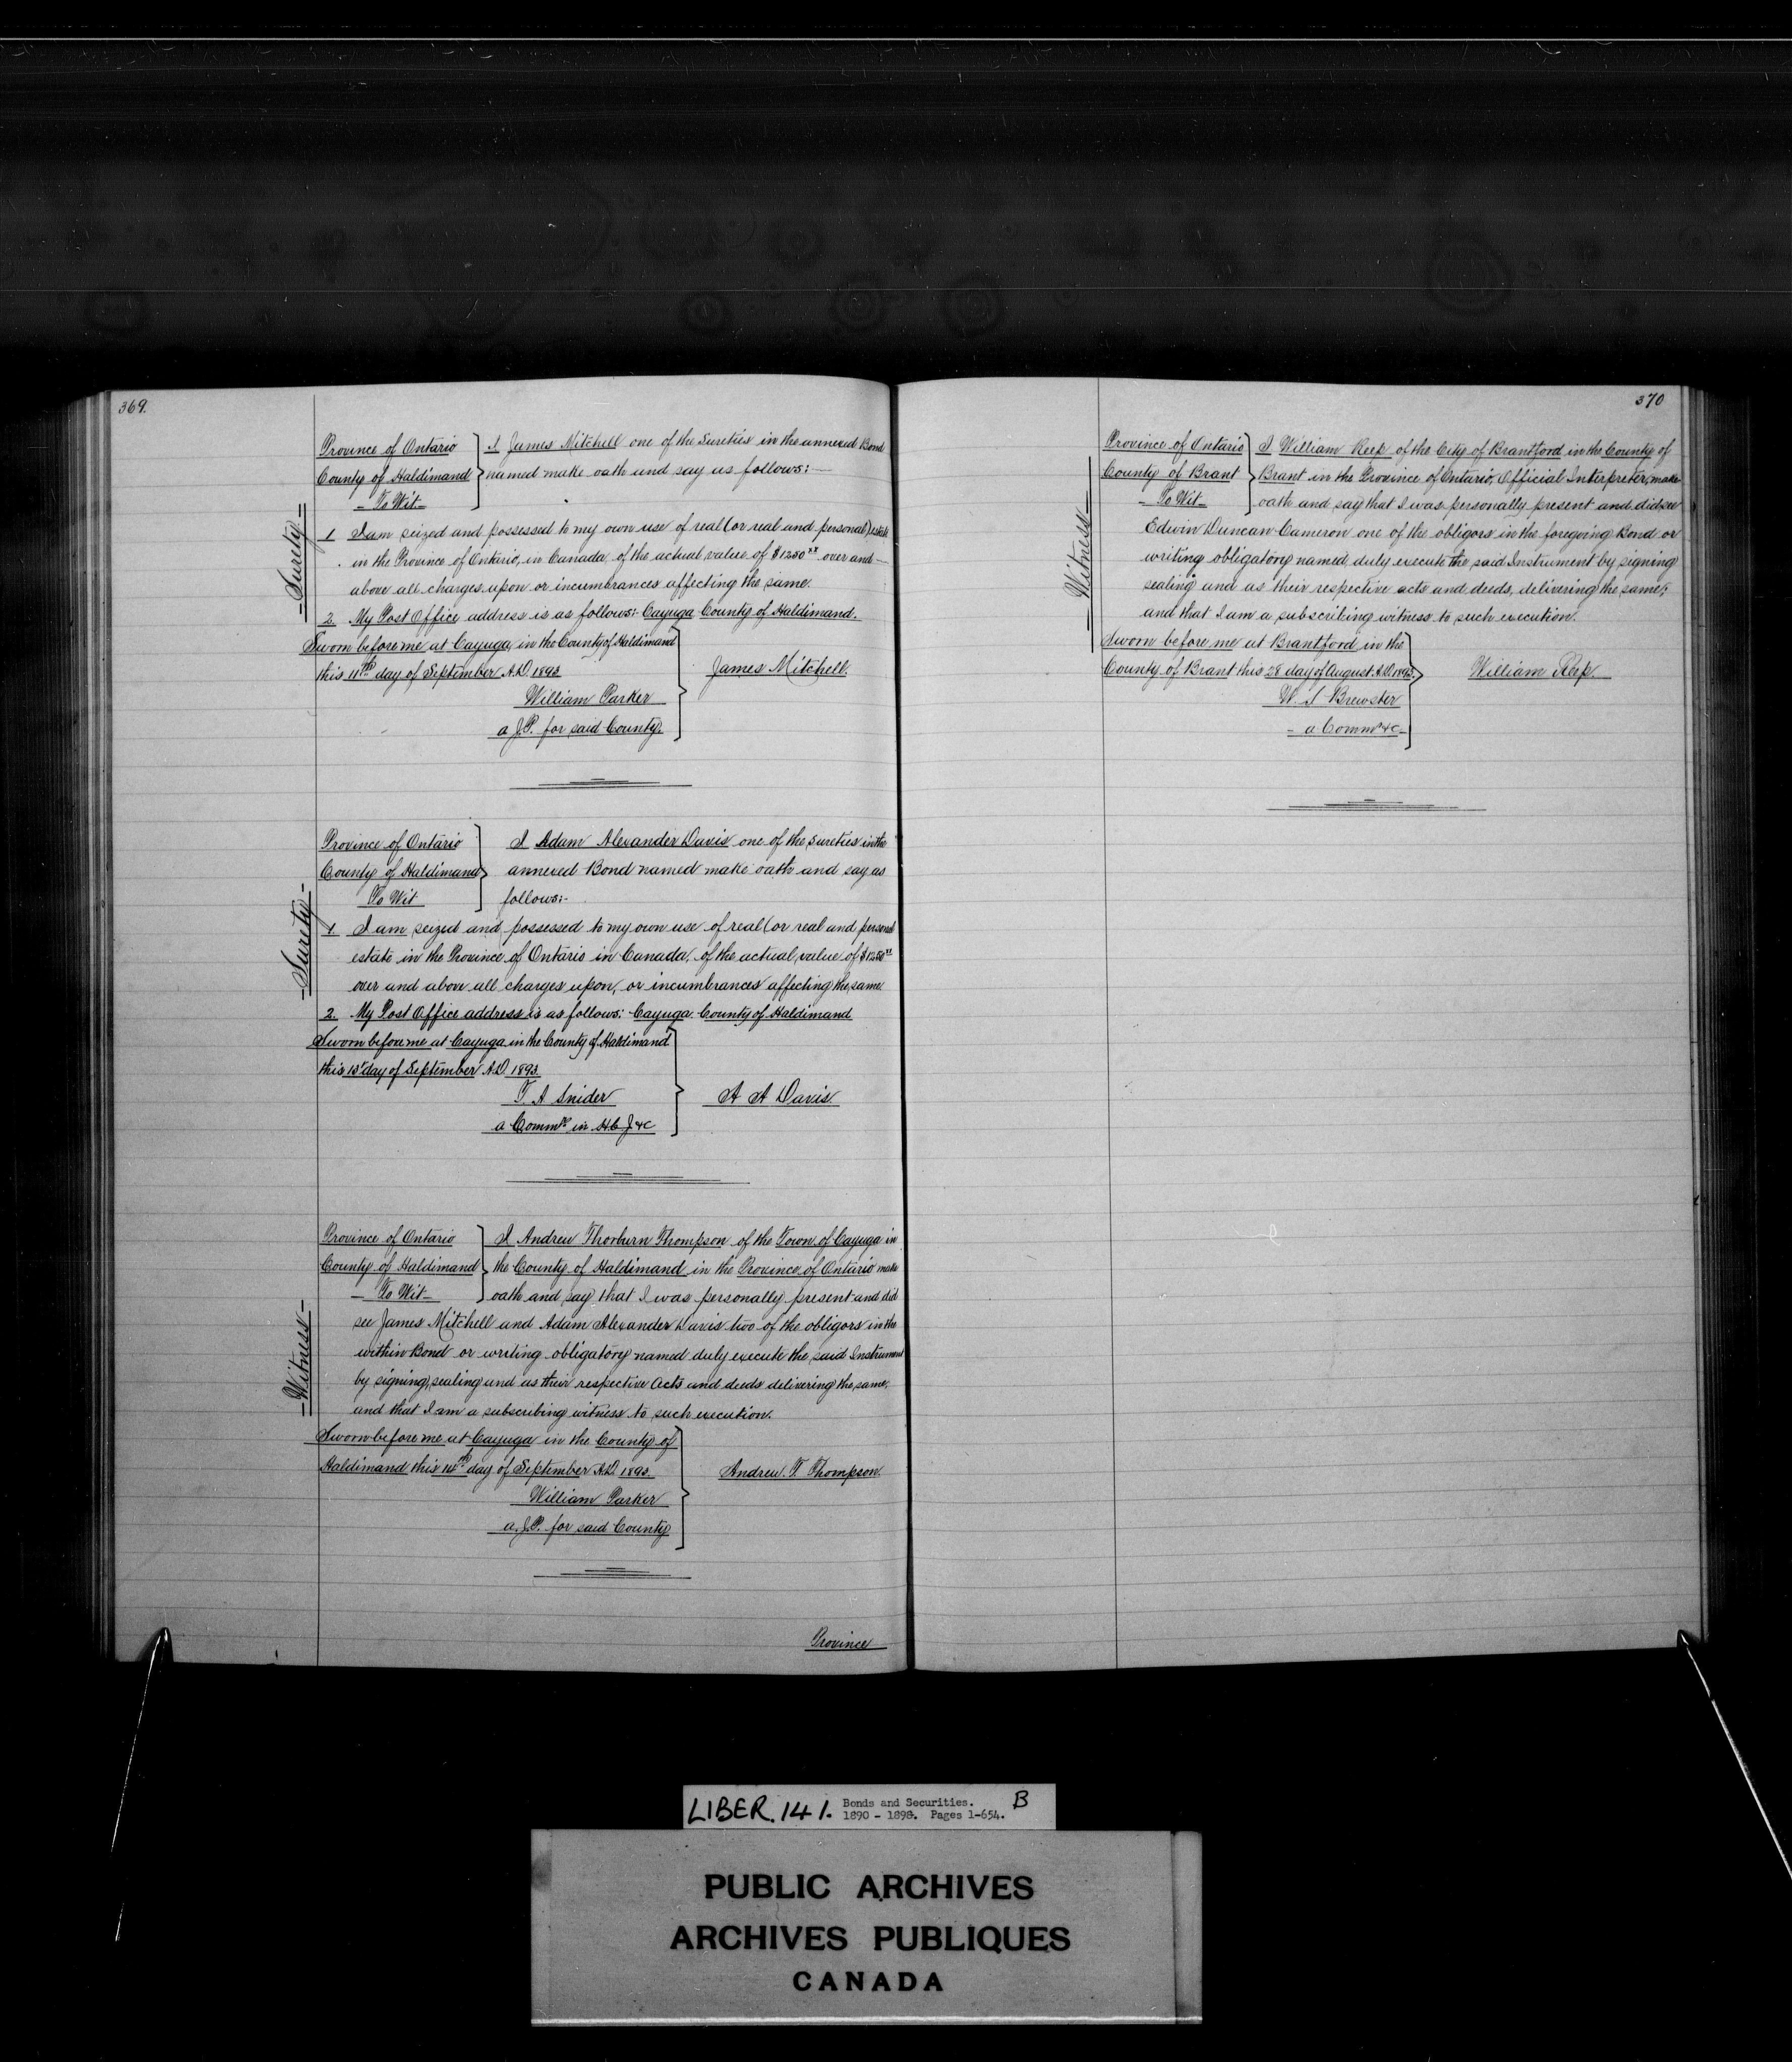 369.
Province of Ontario
County of Haldimand
- To Wit -
I James Mitchell one of the Sureties in the annexed Bond
named make oath and say as follows:-
= Surety =
1 I am seized and possessed to my own use of real (or real and personal) estate
in the Province of Ontario, in Canada, of the actual value of $1250xx over and
above all charges upon or incumbrances affecting the same.
2 My Post Office address is as follows:- Cayuga County of Haldimand.
Sworn before me at Cayuga, in the County of Haldimand
this 11th day of September A.D. 1893
William Parker
a J.P. for said County.
James Mitchell.
Province of Ontario
County of Haldimand
To Wit
I Adam Alexander Davis one of the sureties in the
annexed Bond named make oath and say as
follows:-
= Surety =
1 I am seized and possessed to my own use of real (or real and personal
estate in the Province of Ontario in Canada, of the actual value of $1250xx
over and above all charges upon, or incumbrances affecting the same.
2 My Post Office address is as follows: Cayuga. County of Haldimand
Sworn before me at Cayuga in the County of Haldimand
this 13 day of September A.D. 1893
T. A Snider
a Commr in H.C.J &c
A A Davis
Province of Ontario
County of Haldimand
- To Wit -
I Andrew Thorburn Thompson of the Town of Cayuga in
the County of Haldimand in the Province of Ontario make
oath and say that I was personally present and did
= Witness =
see James Mitchell and Adam Alexander Davis two of the obligors in the
within Bond or writing obligatory named duly execute the said Instrument
by signing, sealing and as their respective Acts and deeds delivering the same,
and that I am a subscribing witness to such execution.
Sworn before me at Cayuga in the County of
Haldimand this 14th day of September A.D. 1893.
William Parker
a. J.P. for said County
Andrew. T. Thompson.
Province
370
Province of Ontario
County of Brant
- To Wit -
I William Reep of the City of Brantford in the County of
Brant in the Province of Ontario, Official Interpreter, make
oath and say that I was personally present and did see
= Witness =
Edwin Duncan Cameron one of the obligors in the foregoing Bond or
writing obligatory named, duly execute the said Instrument by signing
sealing and as their respective acts and deeds, delivering the same;
and that I am a subscribing witness to such execution.
Sworn before me at Brantford in the
County of Brant this 28 day of August A.D. 1893.
W. S Brewster
- a Commr &c -
William Reep.
LIBER. 141. Bonds and Securities. B
1890 - 1898. Pages 1-654.
PUBLIC ARCHIVES
ARCHIVES PUBLIQUES
CANADA